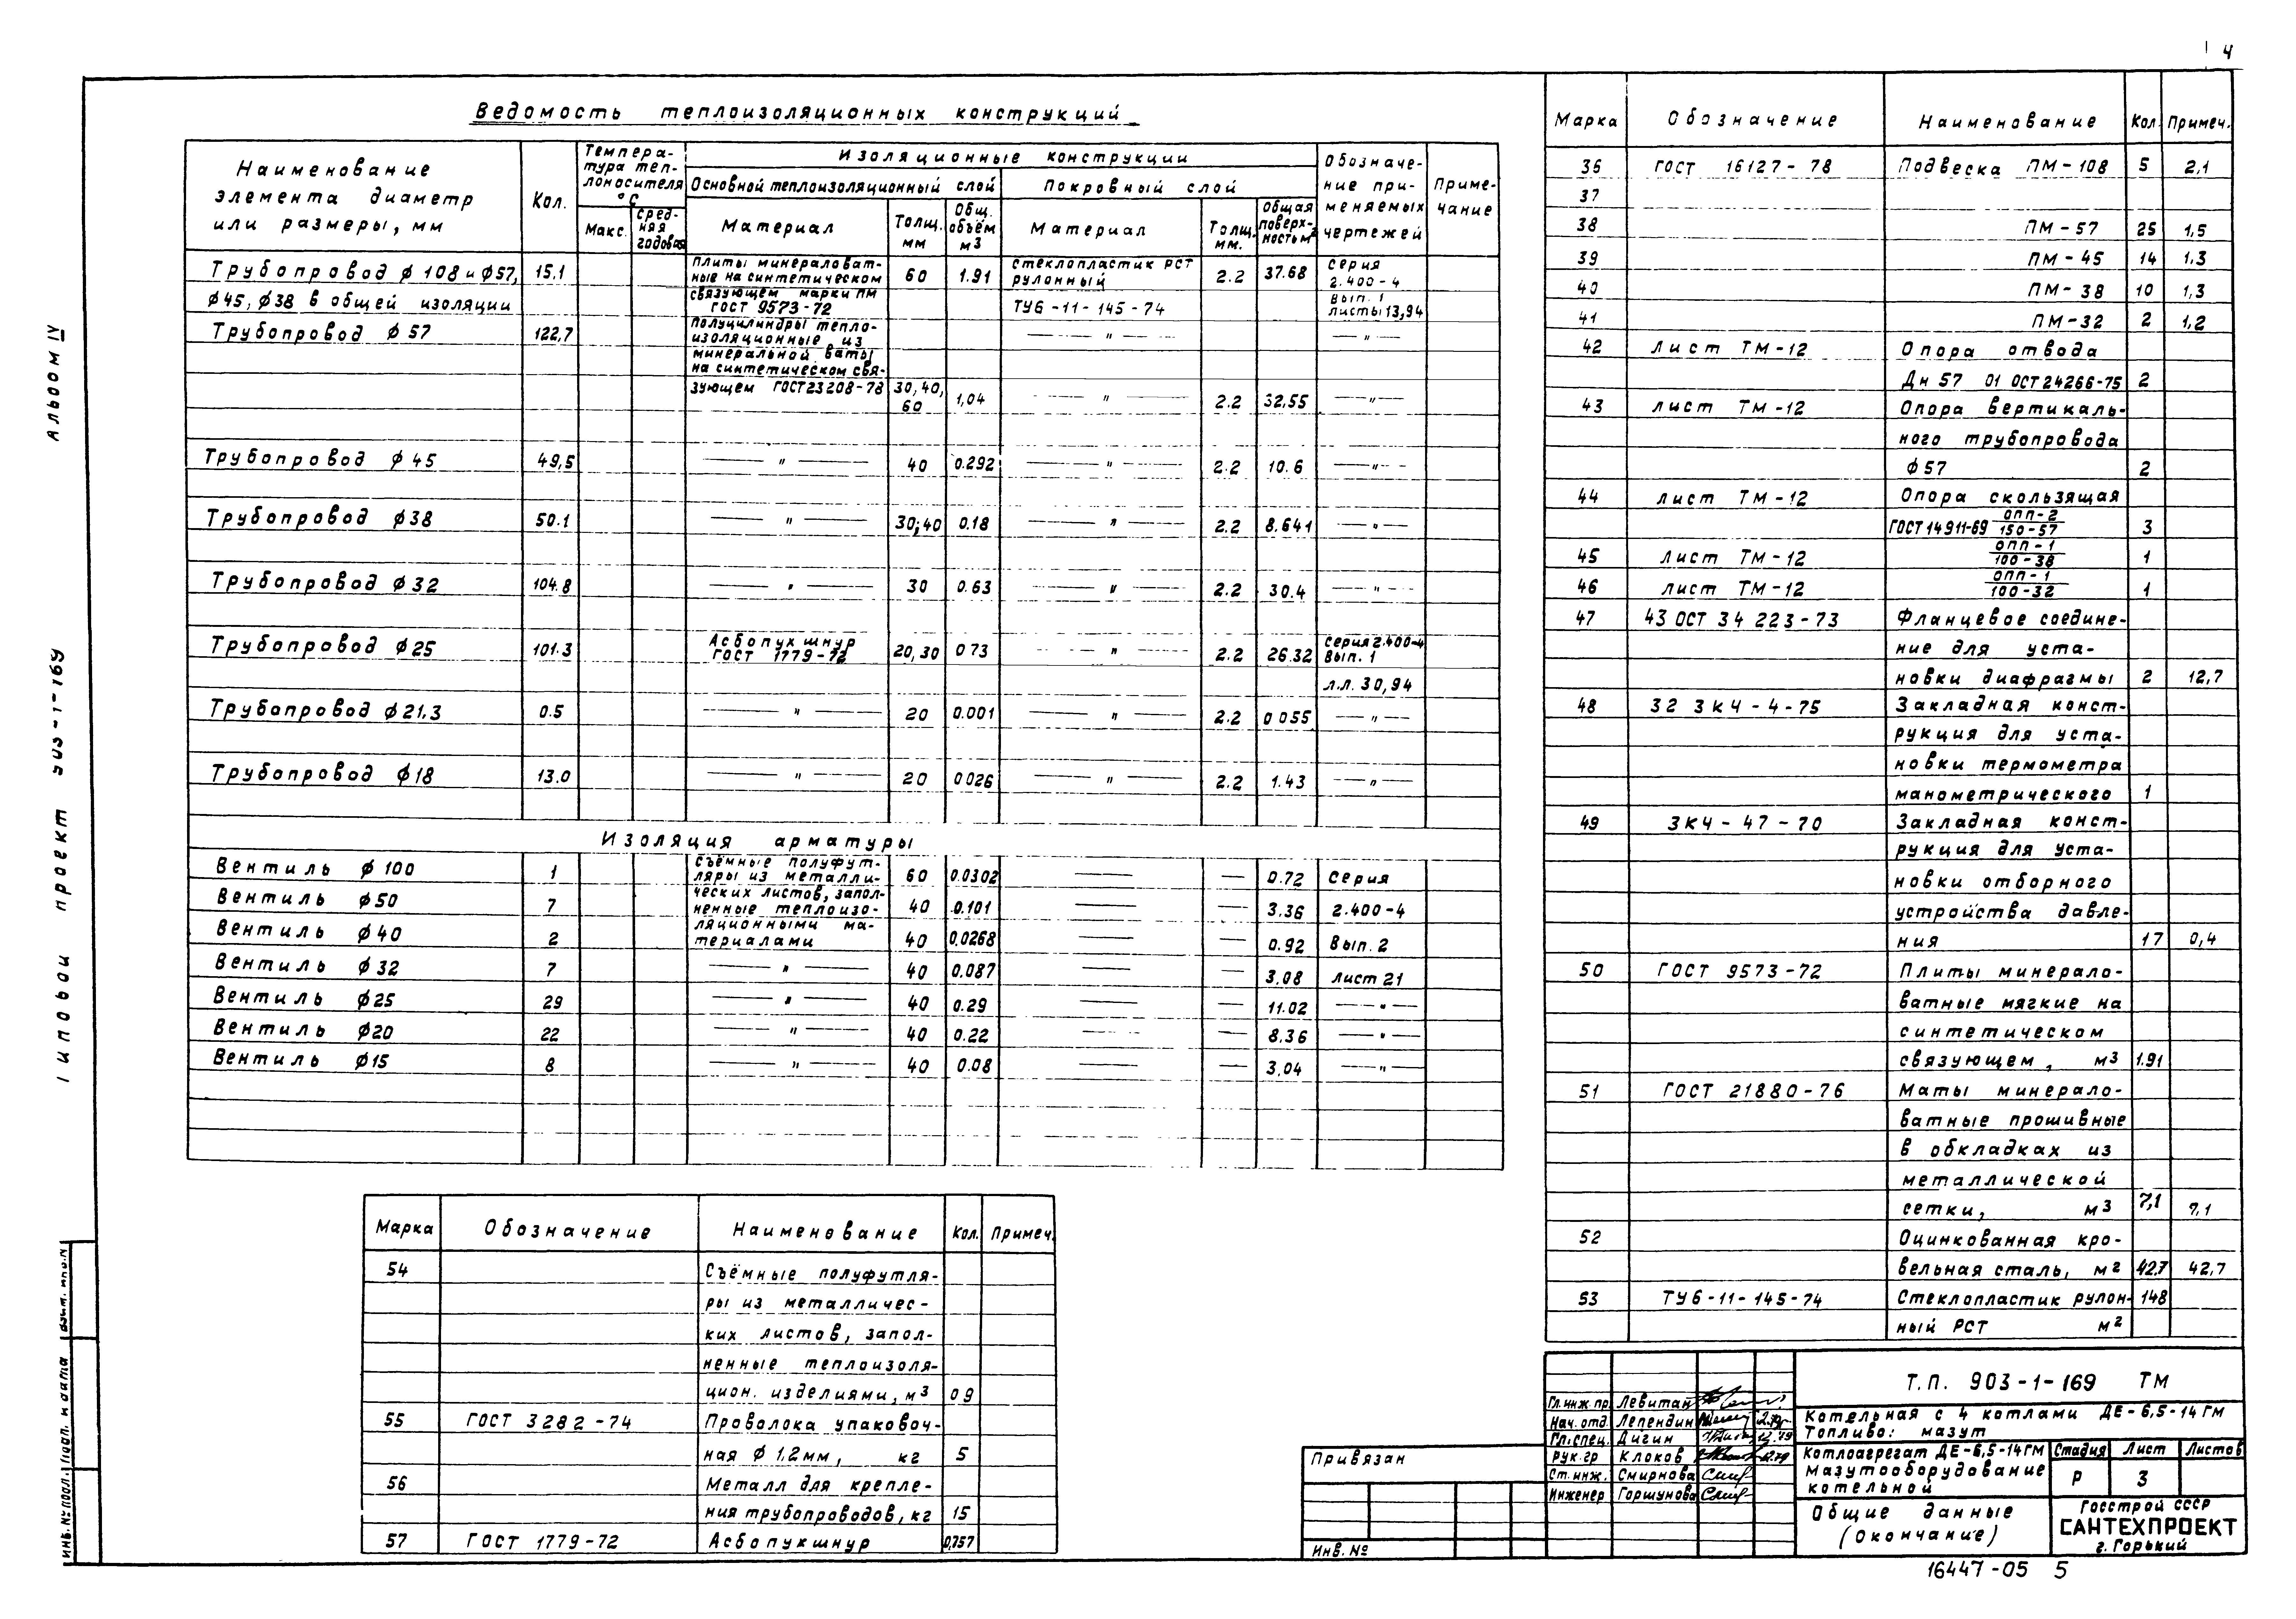 4
Альбом IV
Типовой проект 903-1-169
Ведомость теплоизоляционных конструкций
Наименование элемента диаметр или размеры, мм | Кол. | Температура теплоносителя °С | Изоляционные конструкции | Обозначение применяемых чертежей | Примечание
Макс. | Средняя годовая | Основной теплоизоляционный слой | Покровный слой
Материал | Толщ. мм | Общ. объём м3 | Материал | Толщ. мм. | Общая поверхность м2
Трубопровод ϕ 108 и ϕ57, | 15.1 | плиты минераловат- | 60 | 1.91 | стеклопластик РСТ | 2.2 | 37.68 | серия
ные на синтетическом | рулонный | 2.400-4
ϕ45, ϕ38 в общей изоляции | связующем марки ПМ | Вып. 1
ГОСТ 9573-72 | ТУ6-11-145-74 | листы 13,94
Трубопровод ϕ 57 | 122,7 | полуцилиндры тепло- | —"— | —"—
изоляционные из
минеральной ваты
на синтетическом свя-
зующем ГОСТ 23208-78 | 30,40, 60 | 1,04 | —"— | 2.2 | 32,55 | —"—
Трубопровод ϕ45 | 49,5 | —"— | 40 | 0.292 | —"— | 2.2 | 10.6 | —"—
Трубопровод ϕ38 | 50.1 | —"— | 30;40 | 0.18 | —"— | 2.2 | 8.641 | —"—
Трубопровод ϕ32 | 104.8 | —"— | 30 | 0.63 | —"— | 2.2 | 30.4 | —"—
Трубопровод ϕ25 | 101.3 | Асбопухшнур | 20,30 | 0 73 | —"— | 2.2 | 26.32 | Серия 2.400-4
ГОСТ 1779-72 | Вып. 1
л.л. 30,94
Трубопровод ϕ21,3 | 0.5 | —"— | 20 | 0.001 | —"— | 2.2 | 0 055 | —"—
Трубопровод ϕ18 | 13.0 | —"— | 20 | 0 026 | —"— | 2.2 | 1.43 | —"—
Изоляция арматуры
Вентиль ϕ 100 | 1 | Съёмные полуфут- | 60 | 0.0302 | — | — | 0.72 | Серия
ляры из металли-
Вентиль ϕ50 | 7 | ческих листов, запол- | 40 | 0.101 | — | — | 3.36 | 2.400-4
ненные теплоизо-
Вентиль ϕ40 | 2 | ляционными ма- | 40 | 0,0268 | — | — | 0.92 | Вып. 2
териалами
Вентиль ϕ32 | 7 | —"— | 40 | 0.087 | — | — | 3,08 | лист 21
Вентиль ϕ25 | 29 | —"— | 40 | 0.29 | — | — | 11.02 | —"—
Вентиль ϕ20 | 22 | —"— | 40 | 0.22 | — | — | 8.36 | —"—
Вентиль ϕ15 | 8 | —"— | 40 | 0.08 | — | — | 3.04 | —"—
Марка | Обозначение | Наименование | Кол. | Примеч.
54 | Съёмные полуфутля-
ры из металличес-
ких листов, запол-
ненные теплоизоля-
цион. изделиями, м3 | 0 9
55 | ГОСТ 3282-74 | Проволока упаковоч-
ная ϕ 1,2мм, кг | 5
56 | Металл для крепле-
ния трубопроводов, кг | 15
57 | ГОСТ 1779-72 | Асбопухшнур | 0,757
Марка | Обозначение | Наименование | Кол. | Примеч.
36 | ГОСТ 16127-78 | Подвеска ПМ-108 | 5 | 2,1
37
38 | ПМ-57 | 25 | 1,5
39 | ПМ-45 | 14 | 1.3
40 | ПМ-38 | 10 | 1,3
41 | ПМ-32 | 2 | 1,2
42 | лист ТМ-12 | Опора отвода
Дн 57 01 ОСТ 24266-75 | 2
43 | лист ТМ-12 | Опора вертикаль-
ного трубопровода
ϕ57 | 2
44 | лист ТМ-12 | Опора скользящая
ГОСТ 14911-69 ОПП-2/150-57 | 3
45 | лист ТМ-12 | ОПП-1/100-38 | 1
46 | лист ТМ-12 | ОПП-1/100-32 | 1
47 | 43 ОСТ 34 223-73 | Фланцевое соедине-
ние для уста-
новки диафрагмы | 2 | 12,7
48 | 32 ЗКЧ-4-75 | Закладная конст-
рукция для уста-
новки термометра
манометрического | 1
49 | ЗКЧ-47-70 | Закладная конст-
рукция для уста-
новки отборного
устройства давле-
ния | 17 | 0,4
50 | ГОСТ 9573-72 | Плиты минерало-
ватные мягкие на
синтетическом
связующем, м3 | 1.91
51 | ГОСТ 21880-76 | Маты минерало-
ватные прошивные
в обкладках из
металлической
сетки, м3 | 7,1 | 7,1
52 | Оцинкованная кро-
вельная сталь, м2 | 42,7 | 42,7
53 | ТУ6-11-145-74 | Стеклопластик рулон- | 148
ный РСТ м2
Т.п. 903-1-169 ТМ
Гл. инж. пр. Левитан
Нач. отд. Лепендин
Гл. спец. Дигин 12.79
Рук. гр Клоков 12.79
Ст. инж. Смирнова
Инженер Горшунова
Котельная с 4 котлами ДЕ-6,5-14ГМ
Топливо: мазут
Котлоагрегат ДЕ-6,5-14ГМ
Мазутооборудование
котельной
Стадия | Лист | Листов
Р | 3
Общие данные
(окончание)
Госстрой СССР
САНТЕХПРОЕКТ
г. Горький
Привязан
Инв. №
Инв. № подл. | Подп. и дата | Взам. инв. №
16447-05 5